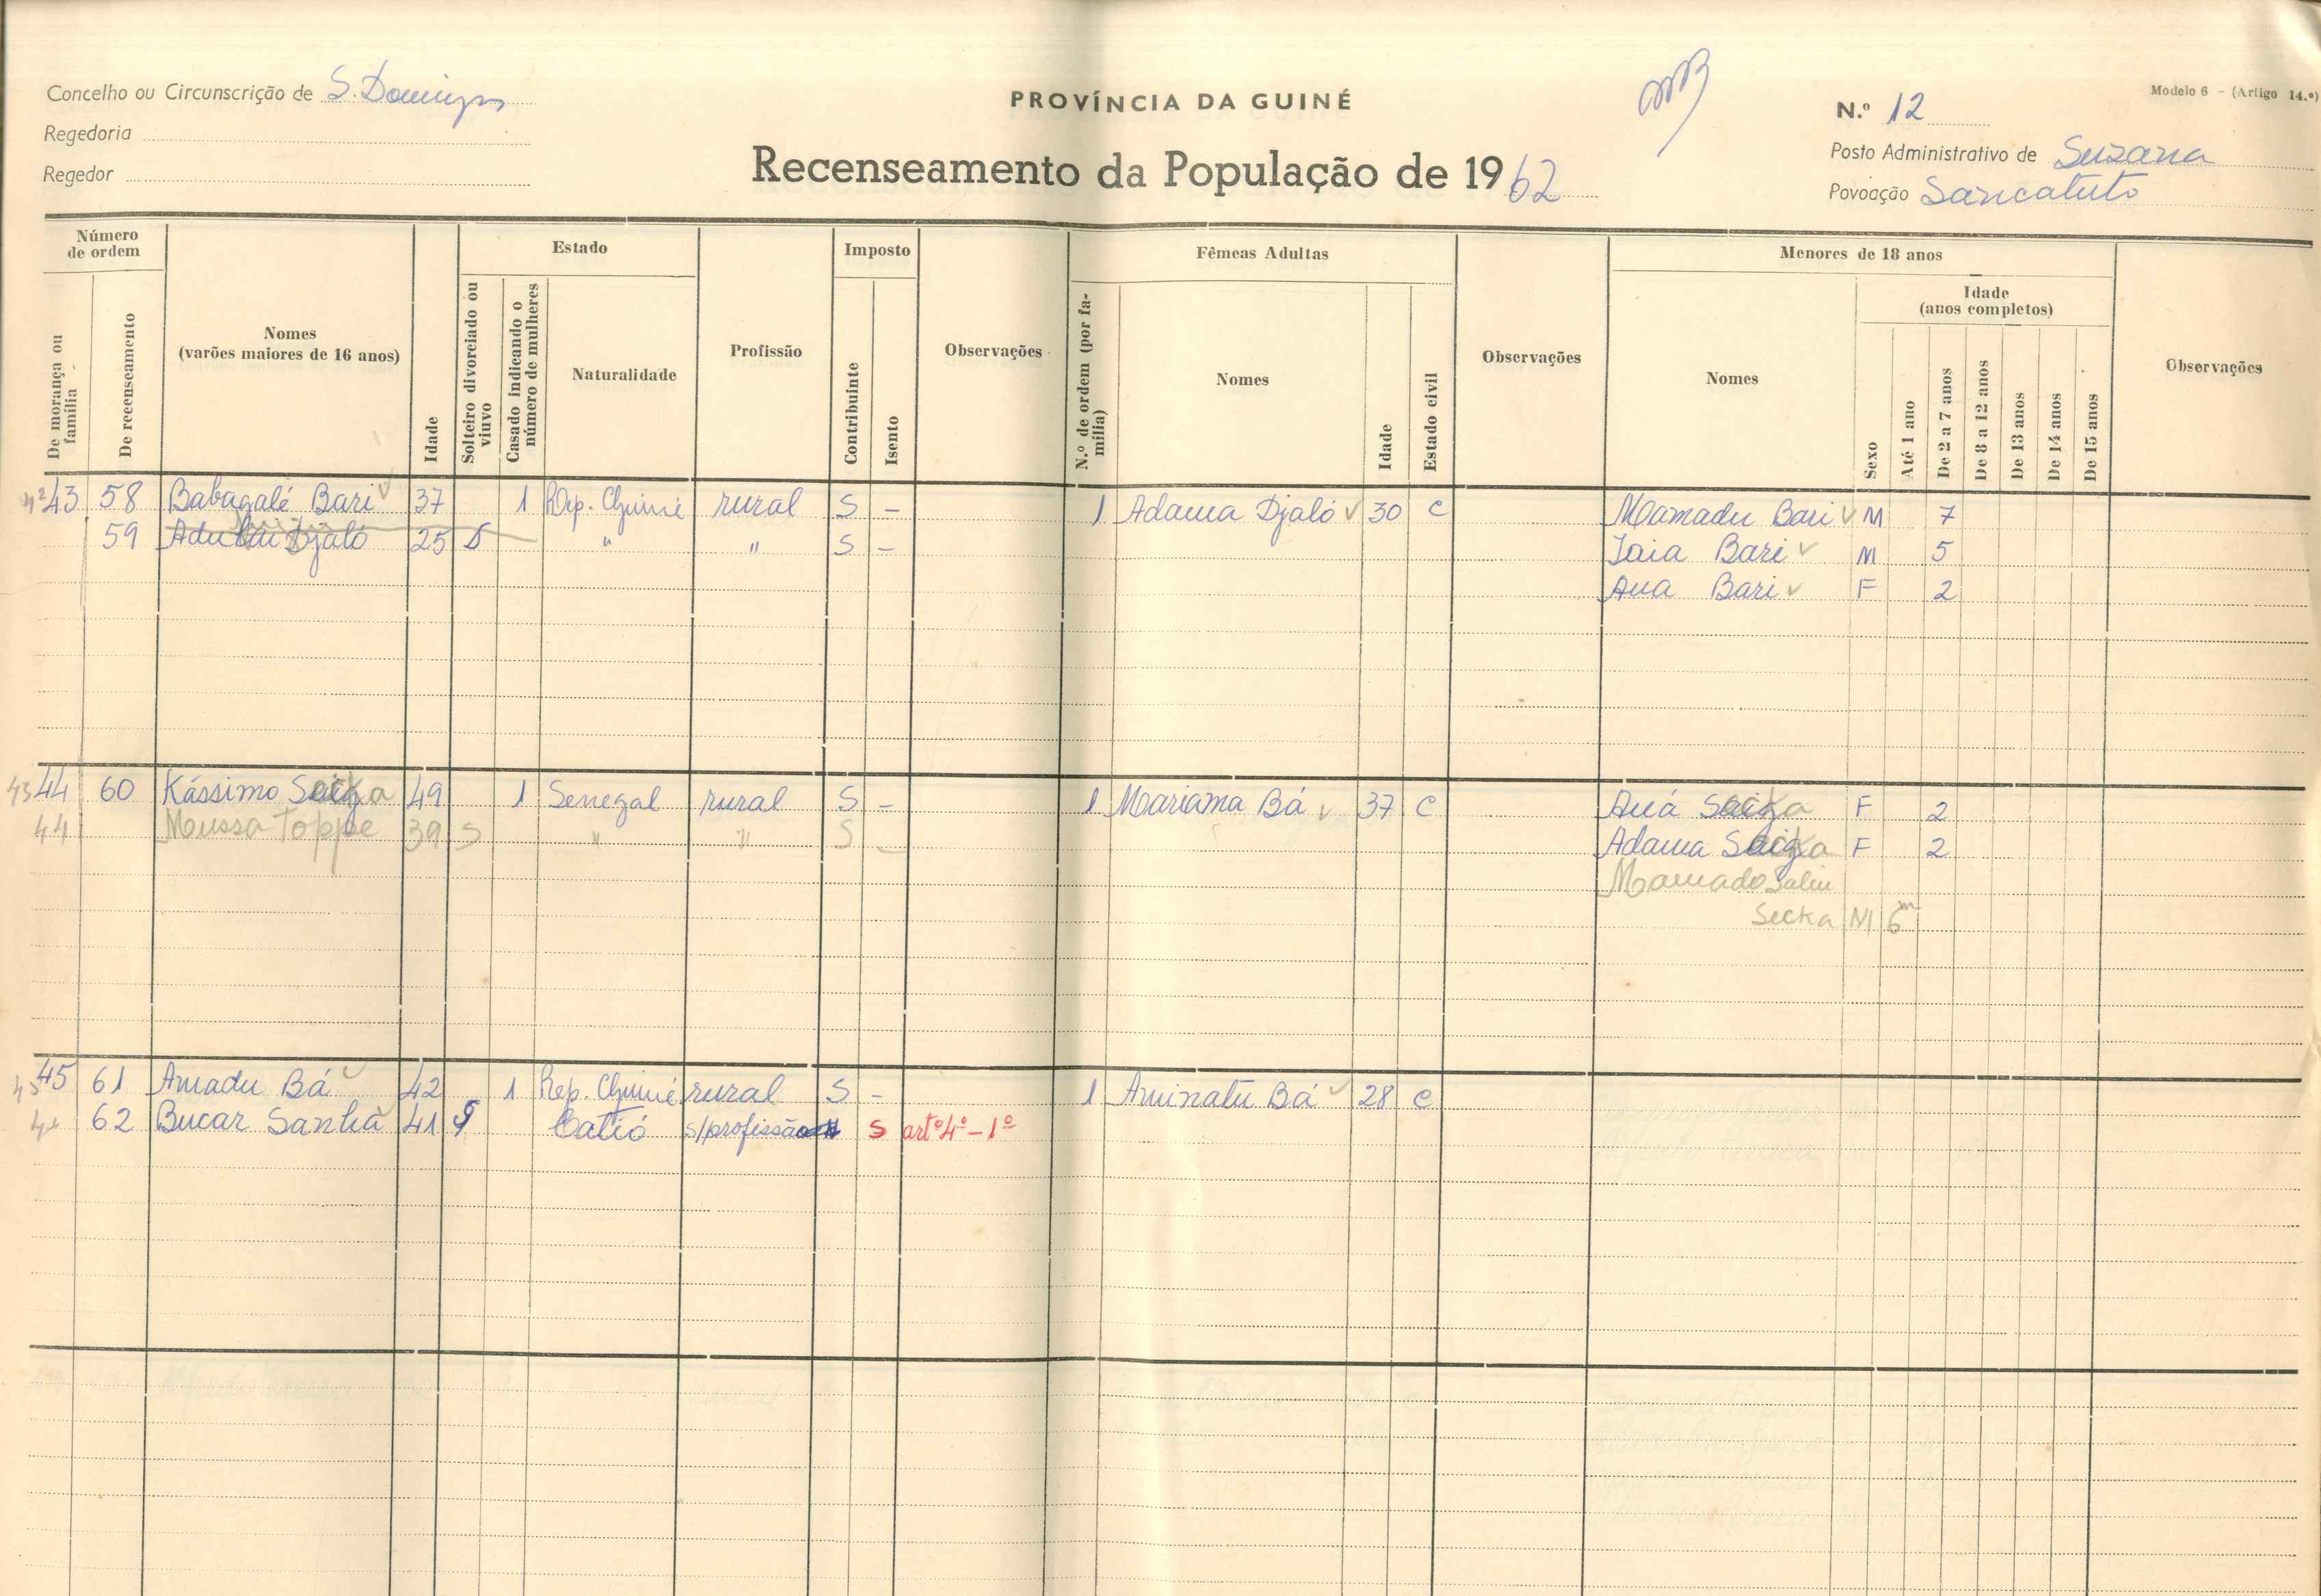 Concelho ou Circunscrição de S. Domingos
Regedoria
Regedor
PROVÍNCIA DA GUINÉ
Recenseamento da População de 1962
Modelo 6 - (Artigo 14.º)
N.º 12
Posto Administrativo de Suzana
Povoação Sancatuto
Número de ordem
De morança ou família
De recenseamento
Nomes (varões maiores de 16 anos)
Idade
Estado
Solteiro divorciado ou viuvo
Casado indicando o número de mulheres
Naturalidade
Profissão
Imposto
Contribuinte
Isento
Observações
N.º de ordem (por família)
Fêmeas Adultas
Nomes
Idade
Estado civil
Observações
Menores de 18 anos
Nomes
Sexo
Idade (anos completos)
Até 1 ano
De 2 a 7 anos
De 8 a 12 anos
De 13 anos
De 14 anos
De 15 anos
Observações
42 43 58 Babagalé Bari 37 1 Rep. Guiné rural S - 1 Adama Djaló 30 C Mamadu Bari M 7
59 Adulai Djaló 25 S " " S - Jaia Bari M 5
Aua Bari F 2
43 44 60 Kássimo Secka 49 1 Senegal rural S - 1 Mariama Bá 37 C Auá Secka F 2
44 Mussa Toppe 39 S " " S - Adama Secka F 2
Mamado Saliu
Secka M 6 m
45 45 61 Amadu Bá 42 1 Rep. Guiné rural S - 1 Aminatu Bá 28 C
62 Bucar Sanhá 41 S Catió s/profissão S artº 4º - 1º